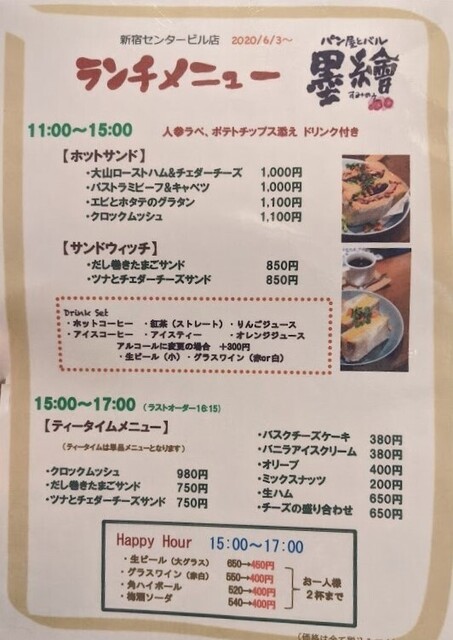 新宿センタービル店 2020/6/3～
ランチメニュー
パン屋とバル
墨繪
すみのえ
11:00～15:00 人参ラペ、ポテトチップス添え ドリンク付き
【ホットサンド】
・大山ローストハム&チェダーチーズ 1,000円
・パストラミビーフ&キャベツ 1,000円
・エビとホタテのグラタン 1,100円
・クロックムッシュ 1,100円
【サンドウィッチ】
・だし巻きたまごサンド 850円
・ツナとチェダーチーズサンド 850円
Drink Set
・ホットコーヒー ・紅茶（ストレート）・りんごジュース
・アイスコーヒー ・アイスティー ・オレンジジュース
アルコールに変更の場合 +300円
・生ビール（小）・グラスワイン（赤or白）
15:00～17:00 （ラストオーダー16:15）
【ティータイムメニュー】
（ティータイムは単品メニューとなります）
・クロックムッシュ 980円
・だし巻きたまごサンド 750円
・ツナとチェダーチーズサンド 750円
・バスクチーズケーキ 380円
・バニラアイスクリーム 380円
・オリーブ 400円
・ミックスナッツ 200円
・生ハム 650円
・チーズの盛り合わせ 650円
Happy Hour 15:00～17:00
・生ビール（大グラス） 650→450円
・グラスワイン（赤白） 550→400円
・角ハイボール 520→400円
・梅酒ソーダ 540→400円
お一人様
2杯まで